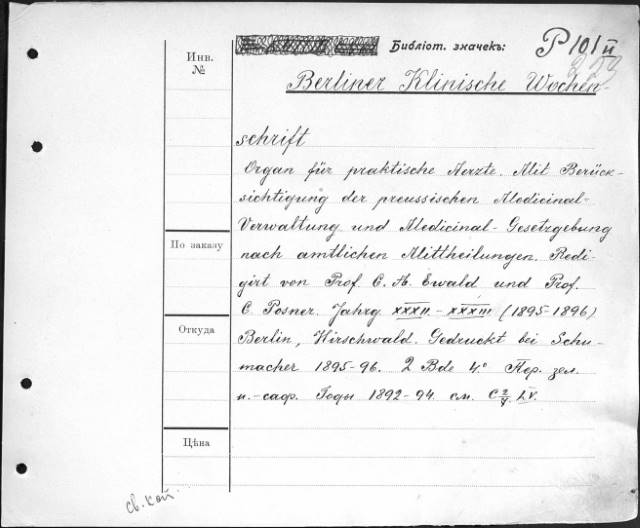 Библіот. значекъ: P 101 II
Инв. №
Berliner Klinische Wochen-
schrift
Organ für praktische Aerzte. Mit Berück-
sichtigung der preussischen Medicinal-
Verwaltung und Medicinal-Gesetzgebung
По заказу
nach amtlichen Mittheilungen. Redi-
girt von Prof. C. A. Ewald und Prof.
C. Posner. Jahrg. XXXII.-XXXIII (1895-1896)
Откуда
Berlin, Hirschwald. Gedruckt bei Schu-
macher 1895-96. 2 Bde 4° Пер. зел.
п.-саф. Годы 1892-94. см. C 2/4. LV.
Цѣна
св. кат.